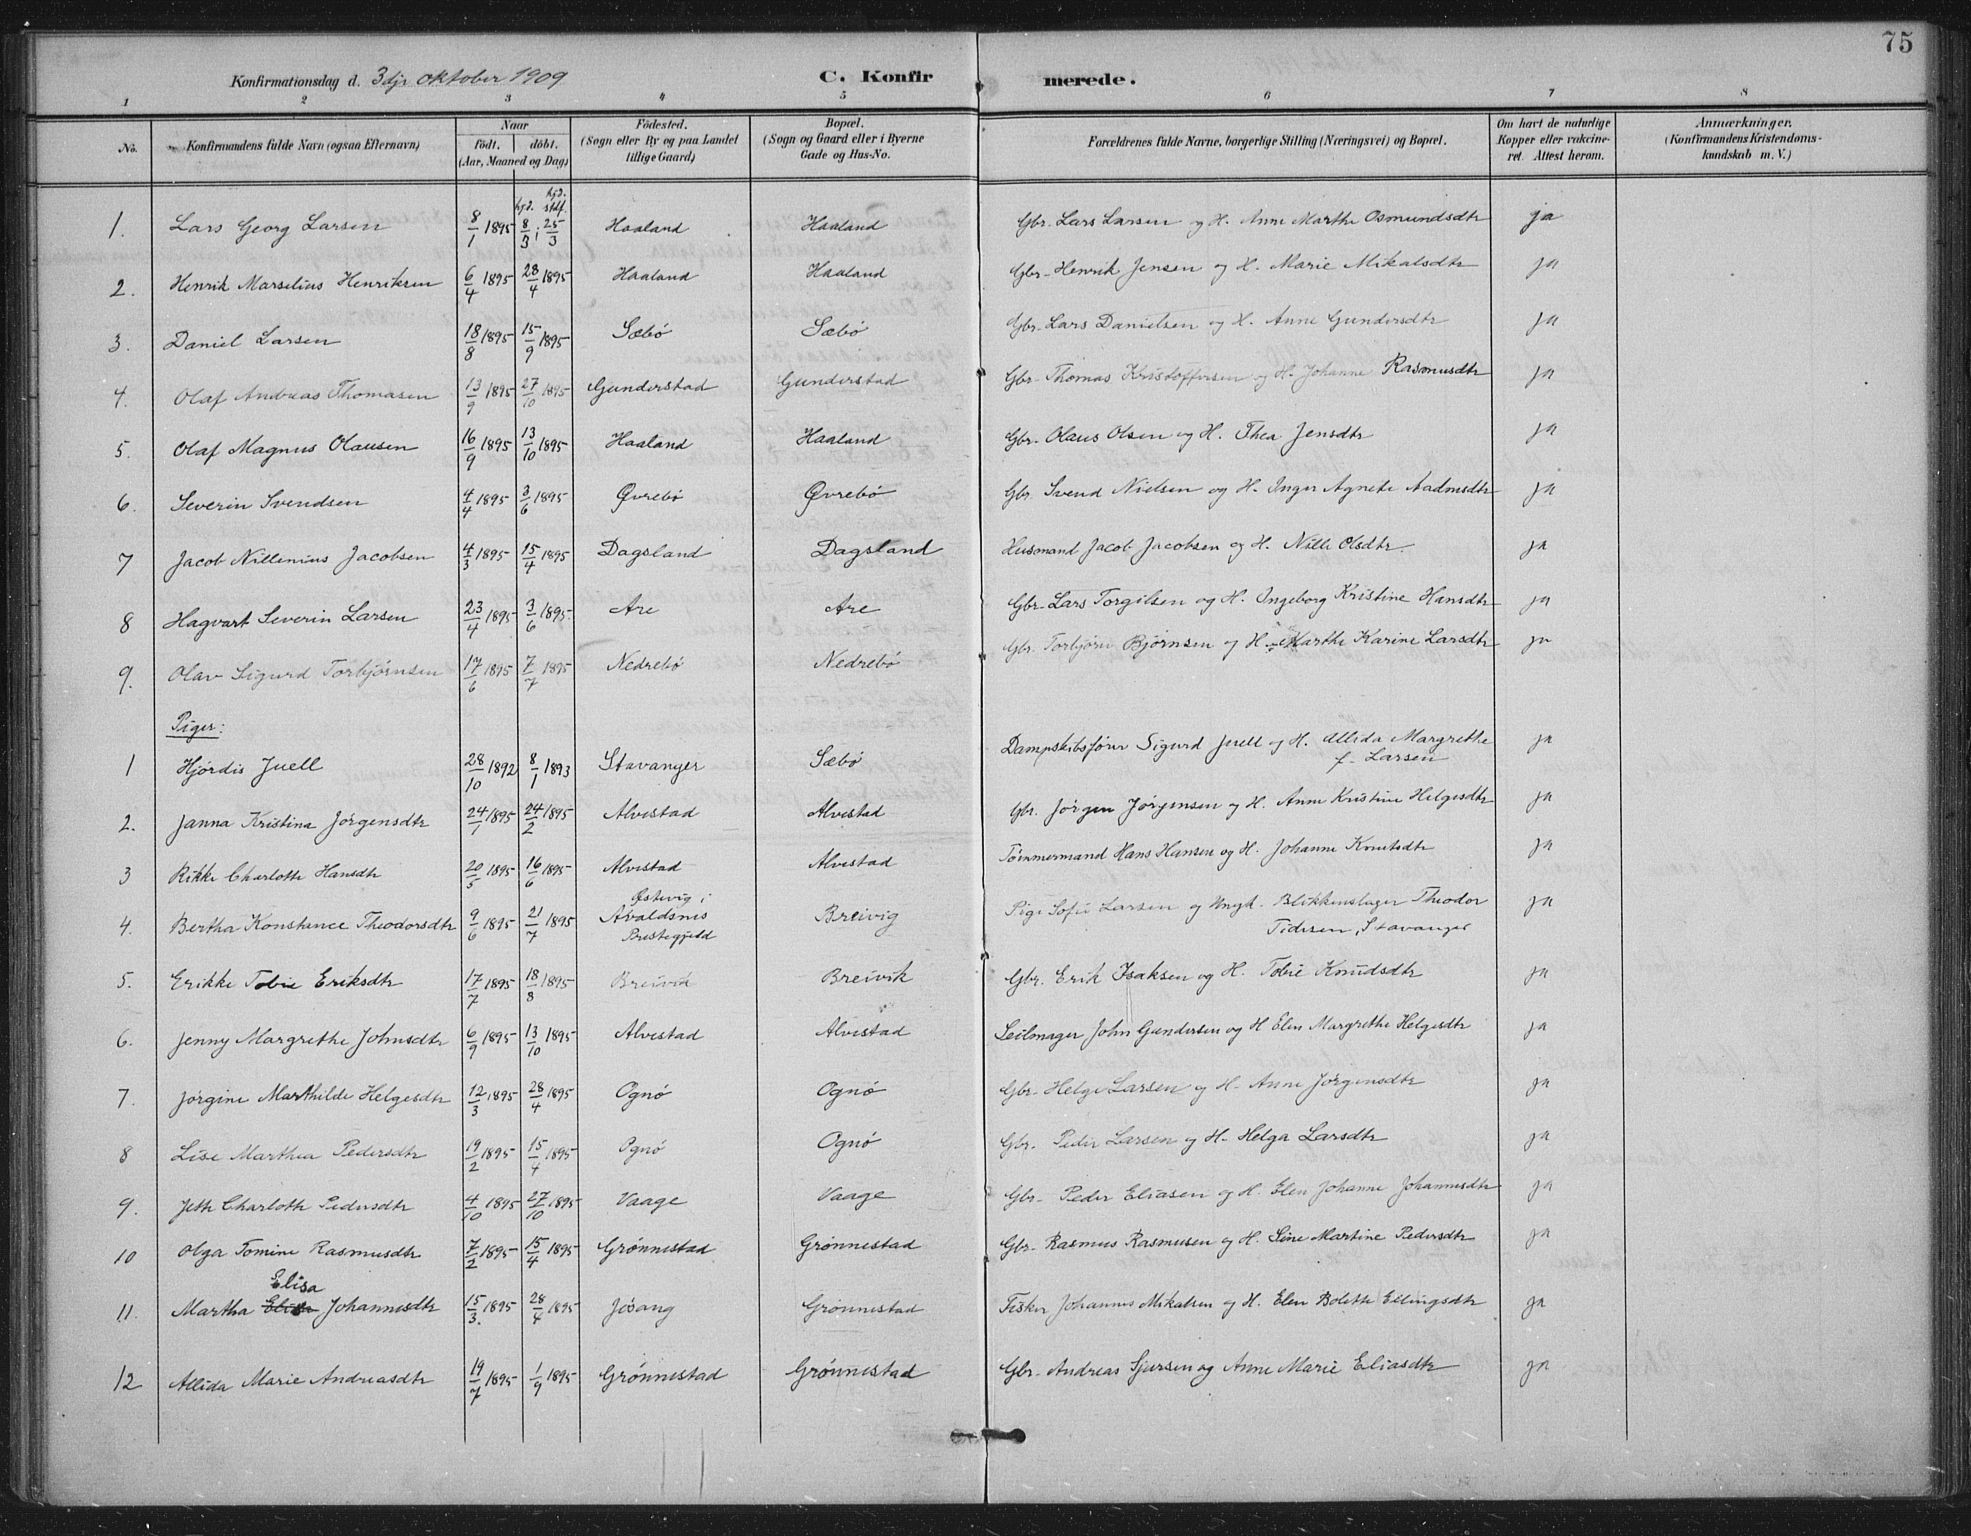 75
Konfirmationsdag d. 3dje oktober 1909 C. Konfirmerede.
1 2 3 4 5 6 7 8
No. Konfirmandens fulde Navn (ogsaa Efternavn) Naar født. døbt. (Aar, Maaned og Dag) Fødested. (Sogn eller By og paa Landet tillige Gaard) Bopæl. (Sogn og Gaard eller i Byerne Gade og Hus-No. Forældrenes fulde Navne, borgerlige Stilling (Næringsvei) og Bopæl. Om havt de naturlige Kopper eller vakcineret. Attest herom. Anmærkninger. (Konfirmandens Kristendomskundskab m. V.)
1. Lars Georg Larsen 8/1 1895 hjd. 8/3 i hjd. stdf. 25/3 Haaland Haaland Gbr. Lars Larsen og H. Anne Marthe Osmundsdtr ja
2. Henrik Marselius Henriksen 6/4 1895 28/4 1895 Haaland Haaland Gbr. Henrik Jensen og H. Marie Mikalsdtr ja
3. Daniel Larsen 18/8 1895 15/9 1895 Sæbø Sæbø Gbr. Lars Danielsen og H. Anne Gundersdtr ja
4. Olaf Andreas Thomasen 13/9 1895 27/10 1895 Gunderstad Gunderstad Gbr. Thomas Kristoffersen og H. Johanne Rasmusdtr ja
5. Olaf Magnus Olausen 16/9 1895 13/10 1895 Haaland Haaland Gbr. Olaus Olsen og H. Thea Jensdtr ja
6. Severin Svendsen 4/4 1895 3/6 1895 Øvrebø Øvrebø Gbr. Svend Nielsen og H. Inger Agnete Aadnesdtr ja
7 Jacob Nillenius Jacobsen 4/3 1895 15/4 1895 Dagsland Dagsland Husmand Jacob Jacobsen og H. Nille Olsdtr. ja
8 Hagvart Severin Larsen 23/4 1895 3/6 1895 Are Are Gbr. Lars Torgilsen og H. Ingeborg Kristine Hansdtr ja
9. Olav Sigurd Torbjørnsen 17/6 1895 7/7 1895 Nedrebø Nedrebø Gbr. Torbjørn Bjørnsen og H. Marthe Karine Larsdtr ja
Piger:
1 Hjørdis Juell 28/10 1892 8/1 1893 Stavanger Sæbø Dampskibsfører Sigurd Juell og H. Allida Margrethe f. Larsen ja
2. Janna Kristina Jørgensdtr 24/1 1895 24/2 1895 Alvestad Alvestad Gbr. Jørgen Jørgensen og H. Anne Kristine Helgesdtr ja
3 Rikke Charlotte Hansdtr 20/5 1895 16/6 1895 Alvestad Alvestad Tømmermand Hans Hansen og H. Johanne Knutsdtr ja
4. Bertha Konstance Theodorsdtr 9/6 1895 21/7 1895 Østevig i Avaldsnes Prestegjeld Breivig Pige Sofie Larsen og Ungk. Blikkenslager Theodor Tidesen, Stavanger ja
5. Erikke Tobie Eriksdtr 17/7 1895 18/8 1895 Breivik Breivik Gbr. Erik Isaksen og H. Tobie Knudsdtr ja
6. Jenny Margrethe Johnsdtr 6/9 1895 13/10 1895 Alvestad Alvestad Seilmager John Gundersen og H Elen Margrethe Helgesdtr ja
7. Jørgine Marthilde Helgesdtr 12/3 1895 28/4 1895 Ognø Ognø Gbr. Helge Larsen og H. Anne Jørgensdtr ja
8 Lise Marthea Pedersdtr 19/2 1895 15/4 1895 Ognø Ognø Gbr. Peder Larsen og H. Helga Larsdtr ja
9. Jette Charlotte Pedersdtr 4/10 1895 27/10 1895 Vaage Vaage Gbr. Peder Eliasen og H. Elen Johanne Johannesdtr ja
10 Olga Tomine Rasmusdtr 7/2 1895 15/4 1895 Grønnestad Grønnestad Gbr. Rasmus Rasmusen og H. Sine Martine Pedersdtr ja
11. Martha Elisa Johannesdtr 15/3 1895 28/4 1895 Jøsang Grønnestad Fisker Johannes Mikalsen og H. Elen Bolette Ellingsdtr ja
12 Allida Marie Andreasdtr 19/7 1895 1/9 1895 Grønnestad Grønnestad Gbr. Andreas Sjursen og Anne Marie Eliasdtr ja